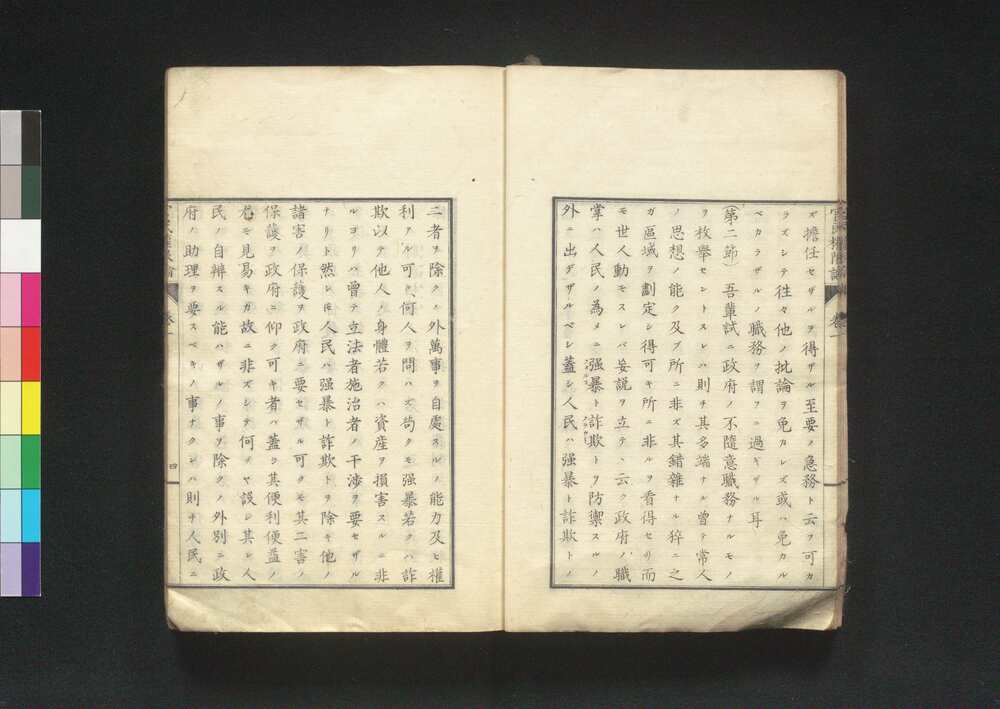 ズ擔任セザルヲ得ザル至要ノ急務ト云フ可カ
ラズシテ徃々他ノ批論ヲ免カレズ或ハ免カル
ベカラザルノ職務ヲ謂フニ過ギザル耳
(第二節)吾輩試ニ政府ノ不隨意職務ナルモノ
ヲ枚擧セントスレハ則チ其多端ナル曽テ常人
ノ思想ノ能ク及ブ所ニ非ズ其錯雜ナル猝ニ之
ガ區域ヲ劃定シ得可キ所ニ非ルヲ看得セリ而
モ世人動モスレバ妄説ヲ立テヽ云ク政府ノ職
掌ハ人民ノ為メニ强暴ト詐欺トヲ防禦スルノ
外ニ出デザルベシ蓋シ人民ハ强暴ト詐欺トノ
二者ヲ除クノ外萬事ヲ自處スルノ能力及ヒ權
利アル可ク何人ヲ問ハズ苟クモ强暴若クハ詐
欺以テ他人ノ身體若クハ資産ヲ損害スルニ非
ルヨリハ曽テ立法者施治者ノ干渉ヲ要セザル
ナリト然シ𪜈人民ハ强暴ト詐欺トヲ除キ他ノ
諸害ノ保護ヲ政府ニ要セザル可クモ其二害ノ
保護ヲ政府ニ仰ク可キ者ハ蓋シ其便利便益ノ
尤モ見易キガ故ニ非ズシテ何ソヤ設シ其レ人
民ノ自辨スル能ハザルノ事ヲ除クノ外別ニ政
府ノ助理ヲ要スベキノ事ナクンハ則チ人民ニ
卷一
四